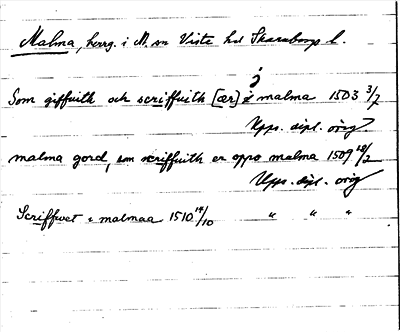 Malma, herrg. i M. sn Viste hd Skaraborgs l.
Som giffuith och scriffuith [ær] i malma 1503 3/7
Upps. dipl. orig.
malma gord, som scriffuith er oppo malma 1509 12/2
Upps. dipl. orig
Scriffwet i malmaa 1510 14/10 " " "